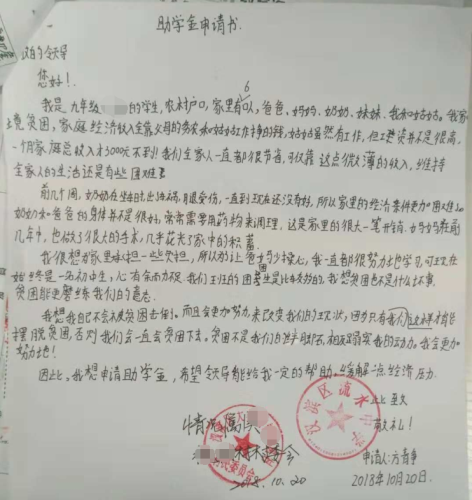 助学金申请书
的领导
您好!
我是九年级的学生,农村户口,家里有6人,爸爸、妈妈、奶奶、妹妹、我和姑姑。我家
境贫困,家庭经济收入全靠父母的务农和姑姑工作挣的钱,姑姑虽然有工作,但工资并不是很高,
一个月家庭总收入才3000元不到!我们全家人一直都很节省,可仅靠这点微薄的收入,维持
全家人的生活还是有些困难!
前几个周,奶奶在,一直到现在还没有好,所以家里的经济条件更加困难了
奶奶和爸爸的身体并不是很好,常常需要用药物来调理,这是家里的很大一笔开销。妈妈在前
几年中,也做了很大的手术,几乎花光了家中的积蓄。
我很想为家里承担一些负担,所以别让爸妈少操心,我一直都很努力地学习,可现在
始终是一名初中生,心有余而力不足。我们班的困生是比较多的,我想贫困也不是什么坏事,
贫困能更磨练我们的意志。
我想我自己不会被贫困击倒。而且会更加努力,来改变我们的现状,因为只有我们改变才能
摆脱贫困,否则我们会一直贫困下去。贫困不是我们的绊脚石,相反的是我的动力。我会更加
努力地!
因此,我想申请助学金,希望领导能给我一定的帮助,缓解一点经济压力。
此致
敬礼!
情况属实
村委会
2018.10.20
申请人:方青争
2018年10月20日.